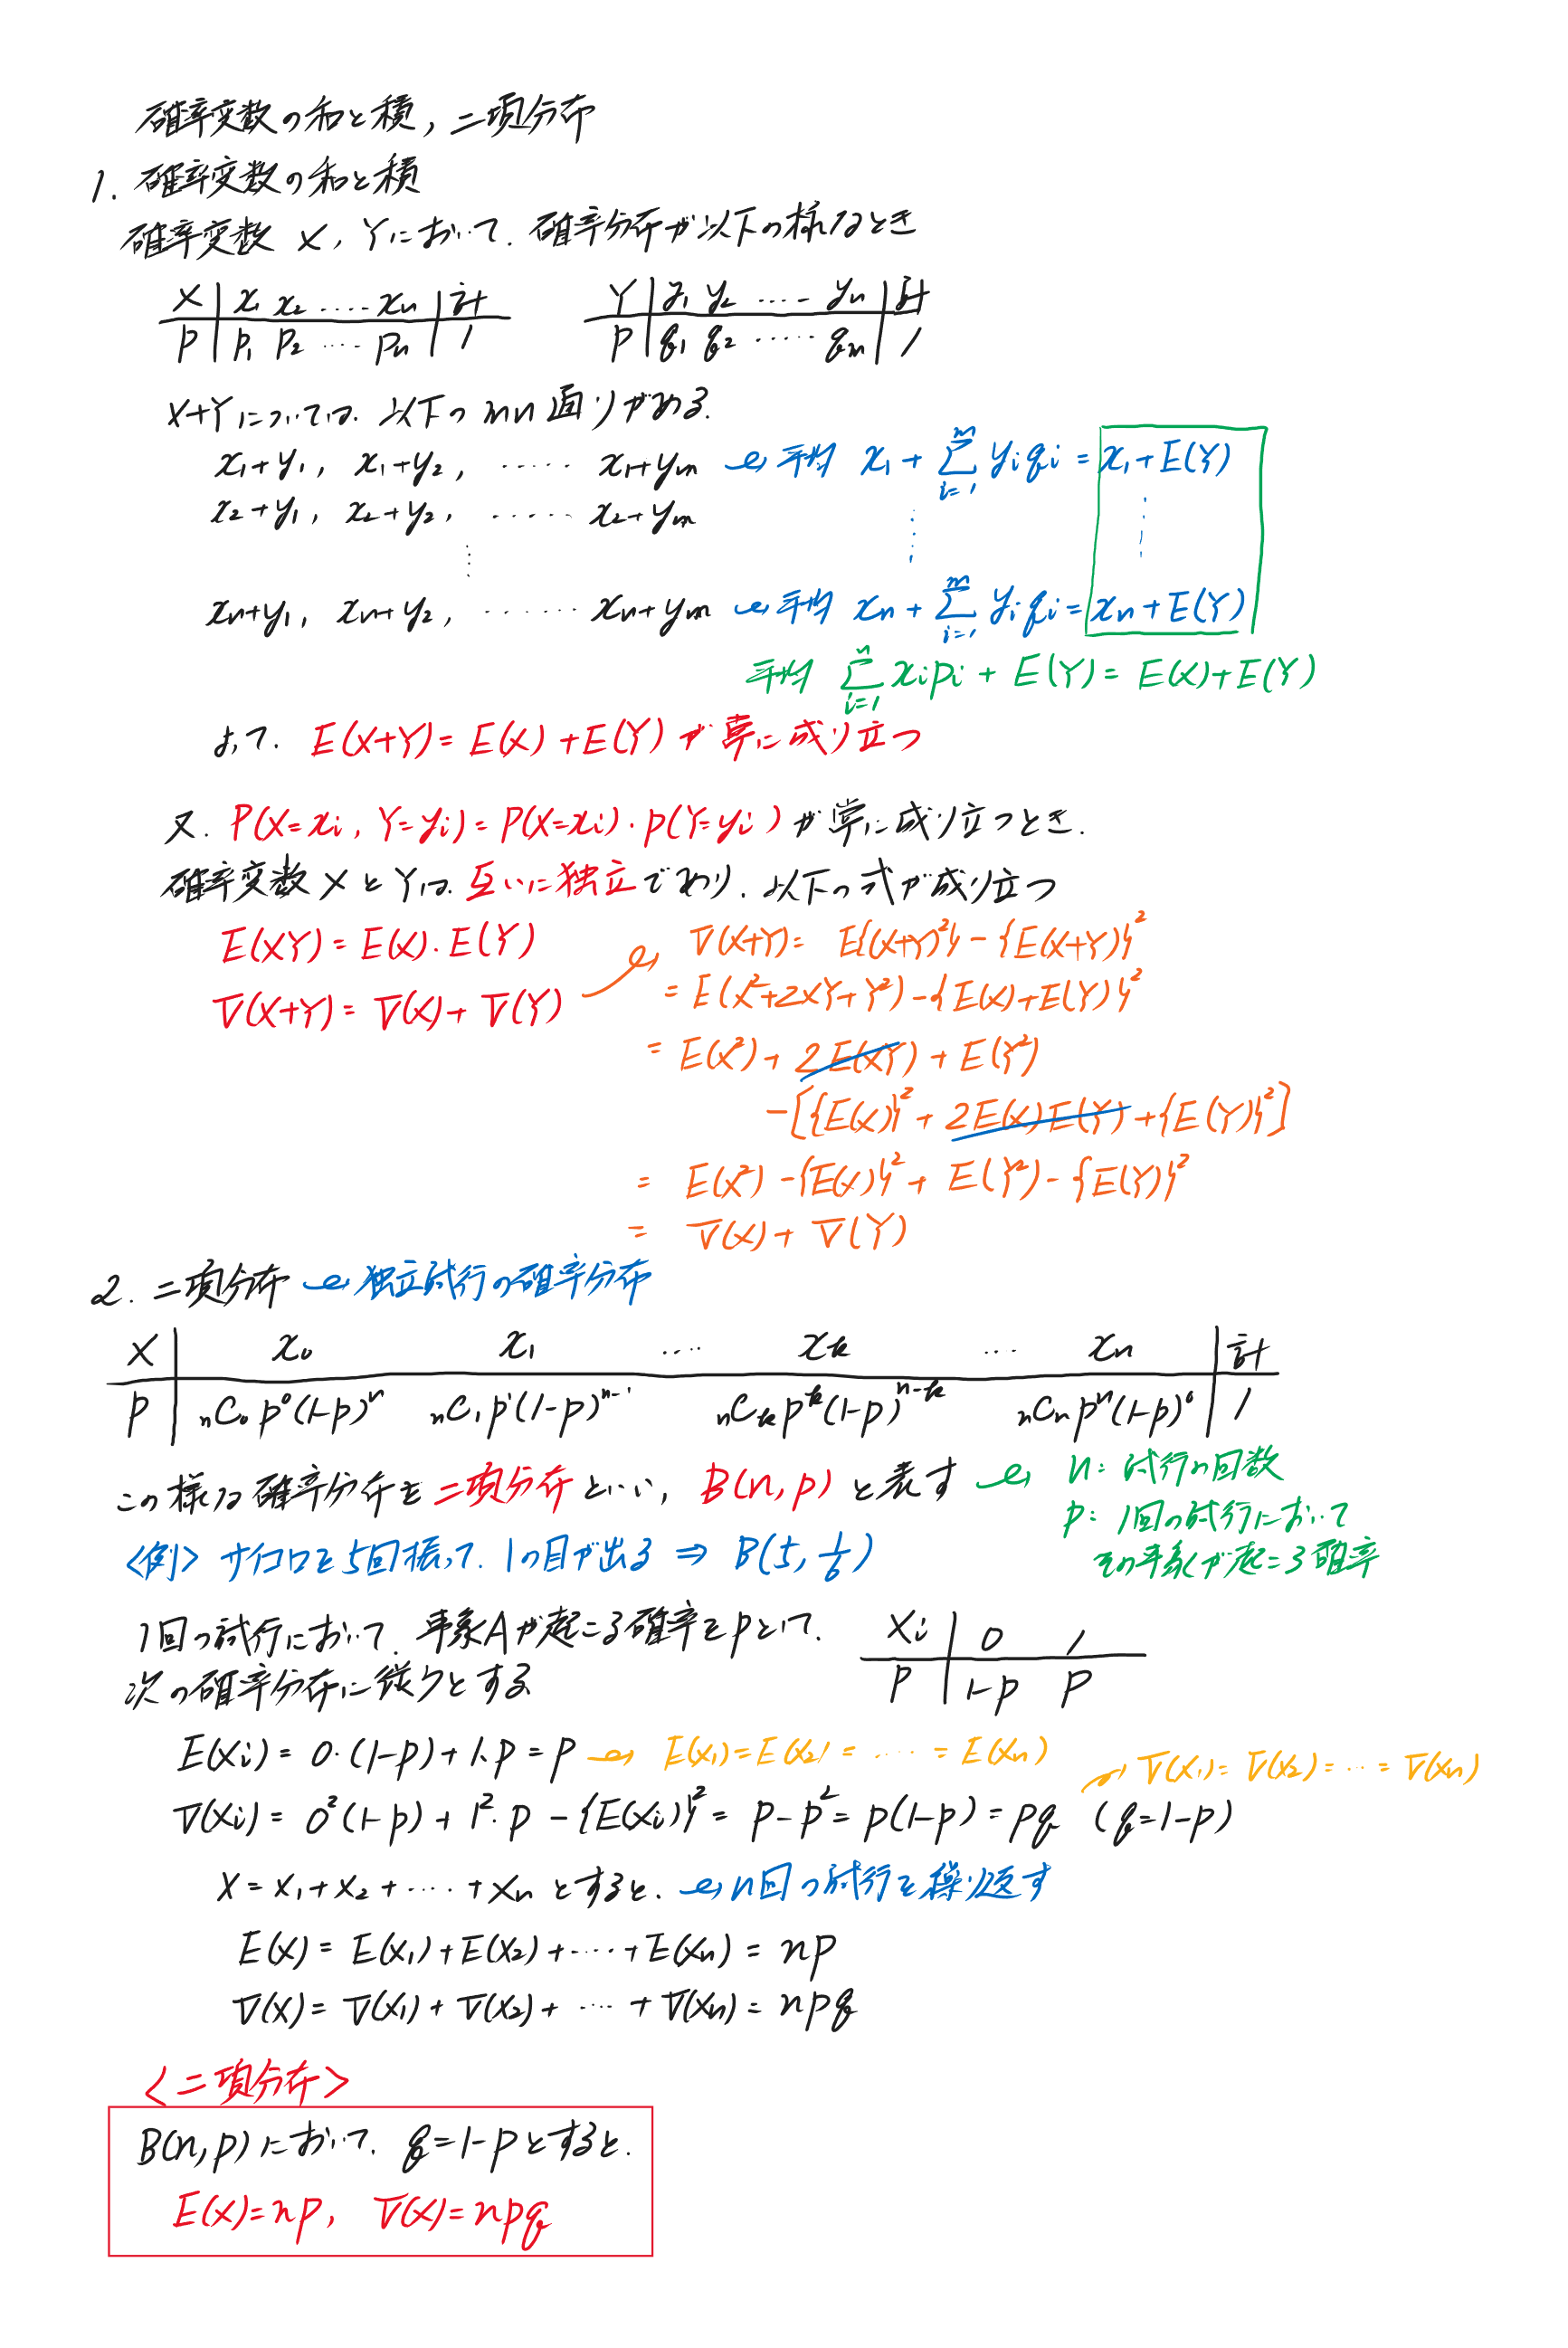 確率変数の和と積, 二項分布
1. 確率変数の和と積
確率変数 X, Yにおいて、確率分布が以下の様なとき
X | x₁ x₂ ‥‥ xn | 計
P | p₁ p₂ ‥‥ pn | 1
Y | y₁ y₂ ‥‥ yn | 計
P | q₁ q₂ ‥‥ qm | 1
X+Yについては、以下のmn通りがある。
x₁+y₁, x₁+y₂, ‥‥ x₁+ym → 平均 x₁ + Σ[i=1→m] yi qi = x₁+E(Y)
x₂+y₁, x₂+y₂, ‥‥ x₂+ym
xn+y₁, xn+y₂, ‥‥ xn+ym → 平均 xn + Σ[i=1→m] yi qi = xn+E(Y)
平均 Σ[i=1→n] xi pi + E(Y) = E(X)+E(Y)
よって、E(X+Y)=E(X)+E(Y) が常に成り立つ
又、P(X=xi, Y=yi)=P(X=xi)・P(Y=yi) が常に成り立つとき、
確率変数XとYは、互いに独立であり、以下の式が成り立つ
E(XY)=E(X)・E(Y)
V(X+Y)=V(X)+V(Y)
→ V(X+Y)= E{(X+Y)²}-{E(X+Y)}²
= E(X²+2XY+Y²)-{E(X)+E(Y)}²
= E(X²)+2E(XY)+E(Y²)
-[{E(X)}²+2E(X)E(Y)+{E(Y)}²]
= E(X²)-{E(X)}²+E(Y²)-{E(Y)}²
= V(X)+V(Y)
2. 二項分布 → 独立試行の確率分布
X | x₀ x₁ ‥‥ xk ‥‥ xn | 計
P | nC₀ p⁰(1-p)ⁿ nC₁ p¹(1-p)ⁿ⁻¹ nCk pᵏ(1-p)ⁿ⁻ᵏ nCn pⁿ(1-p)⁰ | 1
この様な確率分布を二項分布といい, B(n, p) と表す → n: 試行の回数
p: 1回の試行において
その事象が起こる確率
<例> サイコロを5回振って、1の目が出る ⇒ B(5, 1/6)
1回の試行において、事象Aが起こる確率をpとして、
次の確率分布に従うとする
Xi | 0 1
P | 1-p p
E(Xi)= 0・(1-p)+1・p = p → E(X₁)=E(X₂)= ‥‥ = E(Xn)
→ V(X₁)= V(X₂)= ‥‥ = V(Xn)
V(Xi)= 0²(1-p)+1²・p-{E(Xi)}² = p-p² = p(1-p) = pq (q=1-p)
X = X₁+X₂+‥‥+Xn とすると、→ n回の試行を繰り返す
E(X) = E(X₁)+E(X₂)+‥‥+E(Xn) = np
V(X) = V(X₁)+V(X₂)+ ‥‥ +V(Xn) = npq
<二項分布>
B(n, p) において、q=1-p とすると、
E(X)=np, V(X)=npq